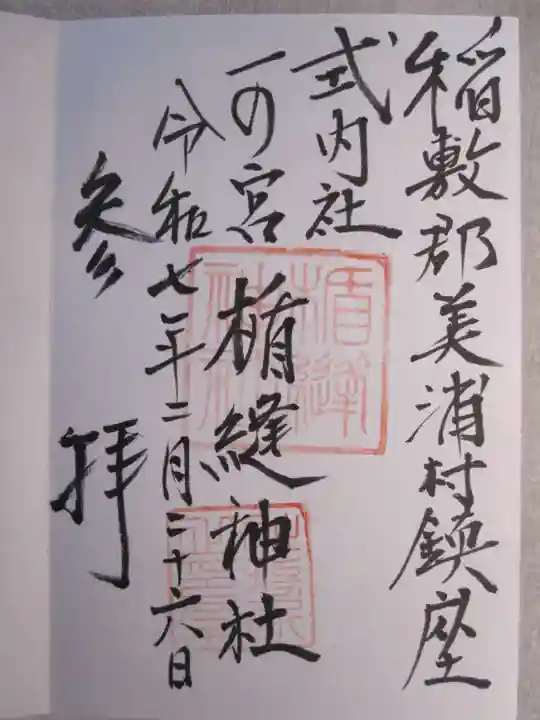 稲敷郡美浦村鎮座
式内社
一の宮 楯縫神社
令和七年二月二十六日
参拝
楯縫神社